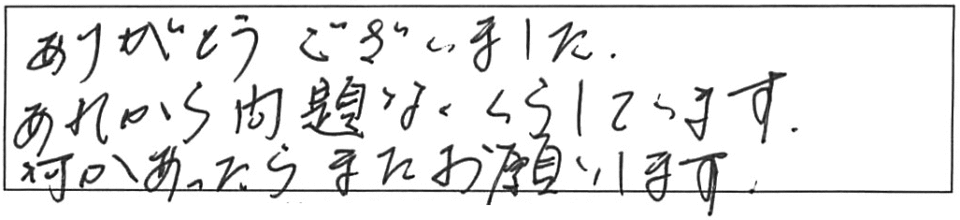 ありがとうございました.
あれから問題なくくらしています.
何かあったらまたお願いします.